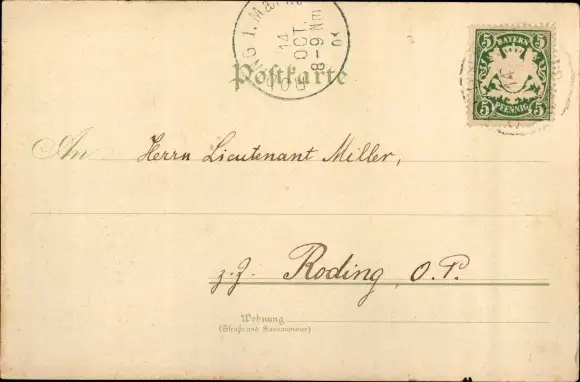 5 BAYERN 5
5 PFENNIG 5
14
OCT.
8-9 Nm
RODING
Postkarte
An Herrn Lieutenant Miller,
z. Z. Roding, O.P.
Wohnung
(Straße und Hausnummer)